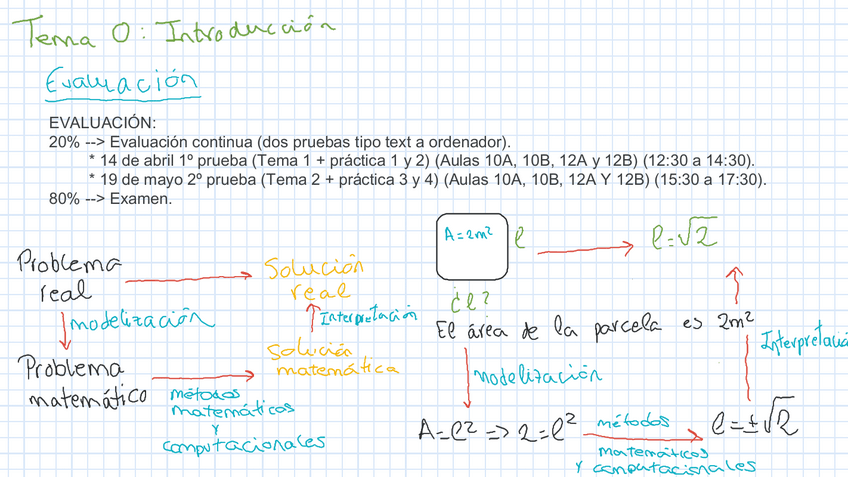 Tema 0: Introducción
Evaluación
EVALUACIÓN:
20% --> Evaluación continua (dos pruebas tipo text a ordenador).
* 14 de abril 1º prueba (Tema 1 + práctica 1 y 2) (Aulas 10A, 10B, 12A y 12B) (12:30 a 14:30).
* 19 de mayo 2º prueba (Tema 2 + práctica 3 y 4) (Aulas 10A, 10B, 12A Y 12B) (15:30 a 17:30).
80% --> Examen.
Problema
real
Solución
real
modelización
Interpretación
Problema
matemático
Solución
matemática
métodos
matemáticos
y
computacionales
A=2m²
l
l=√2
¿l?
El área de la parcela es 2m²
modelización
Interpretació
A=l² => 2=l²
métodos
matemáticos
y computacionales
l=±√2